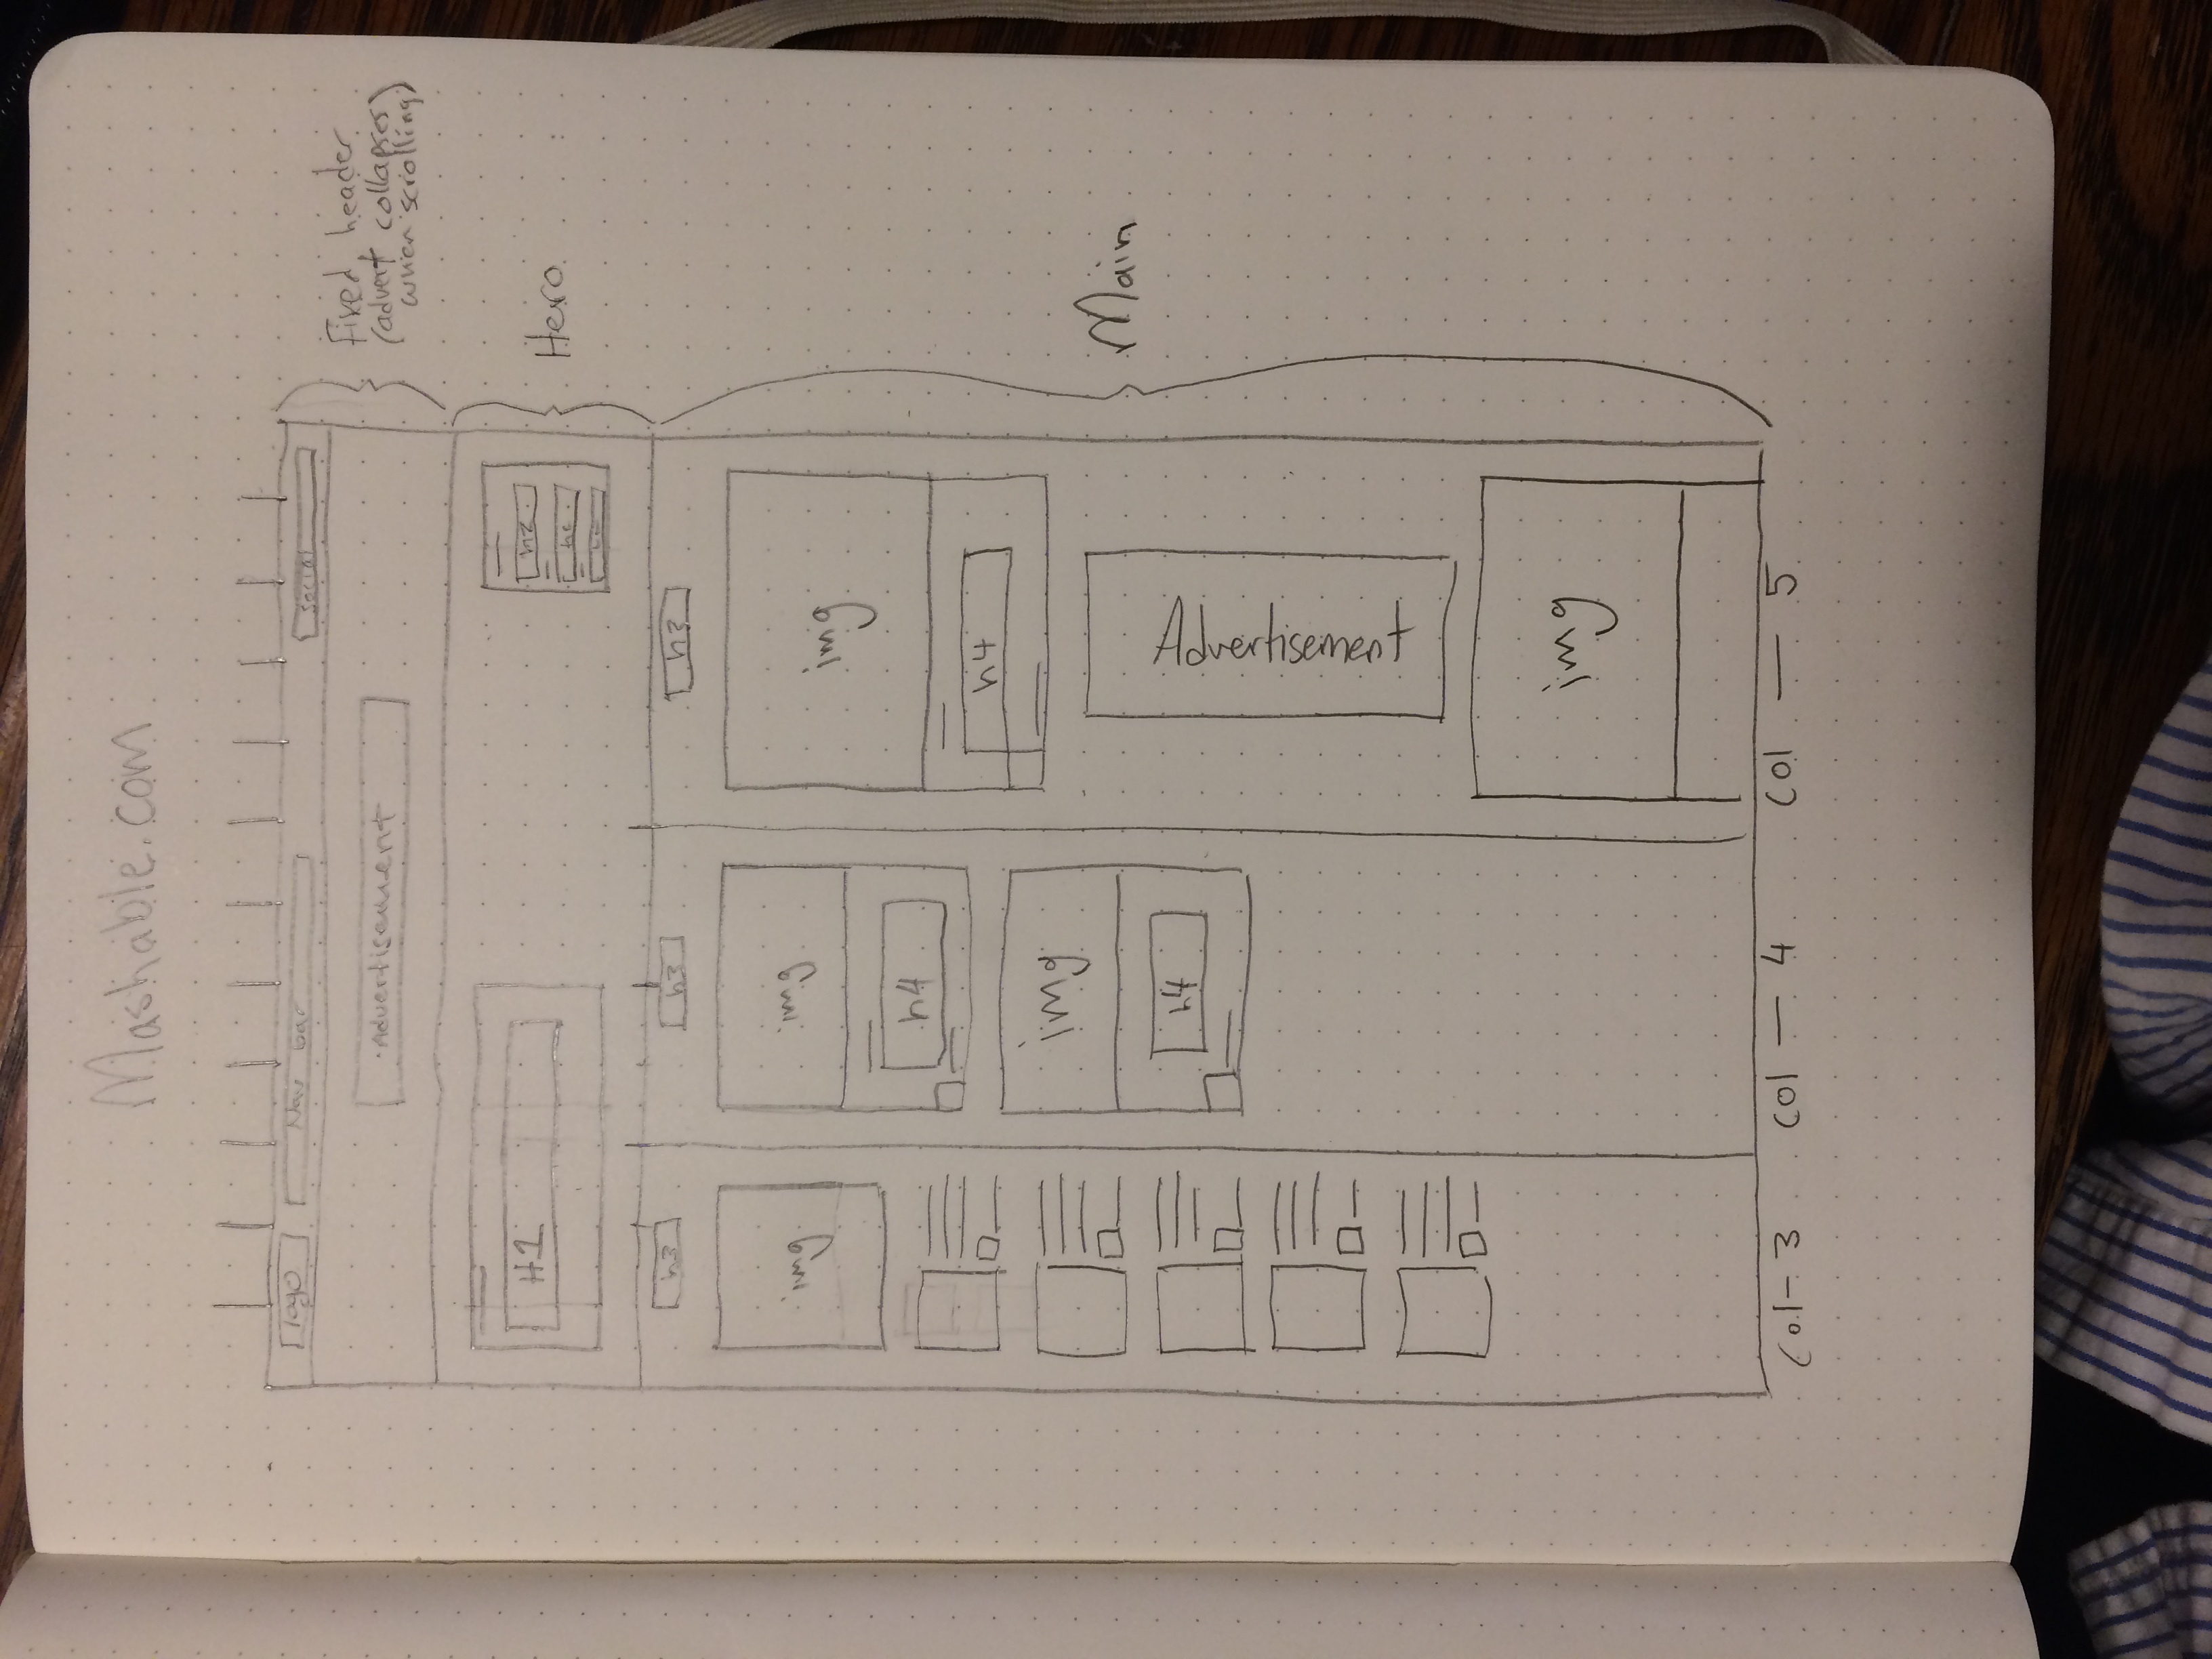 Mashable.com
logo
Nav bar
social
Advertisement
Fixed header
(advert collapses
when scrolling)
H1
h2
Hero
h3
h3
h3
img
img
img
h4
h4
img
h4
Advertisement
Main
img
Col-3
Col — 4
Col — 5